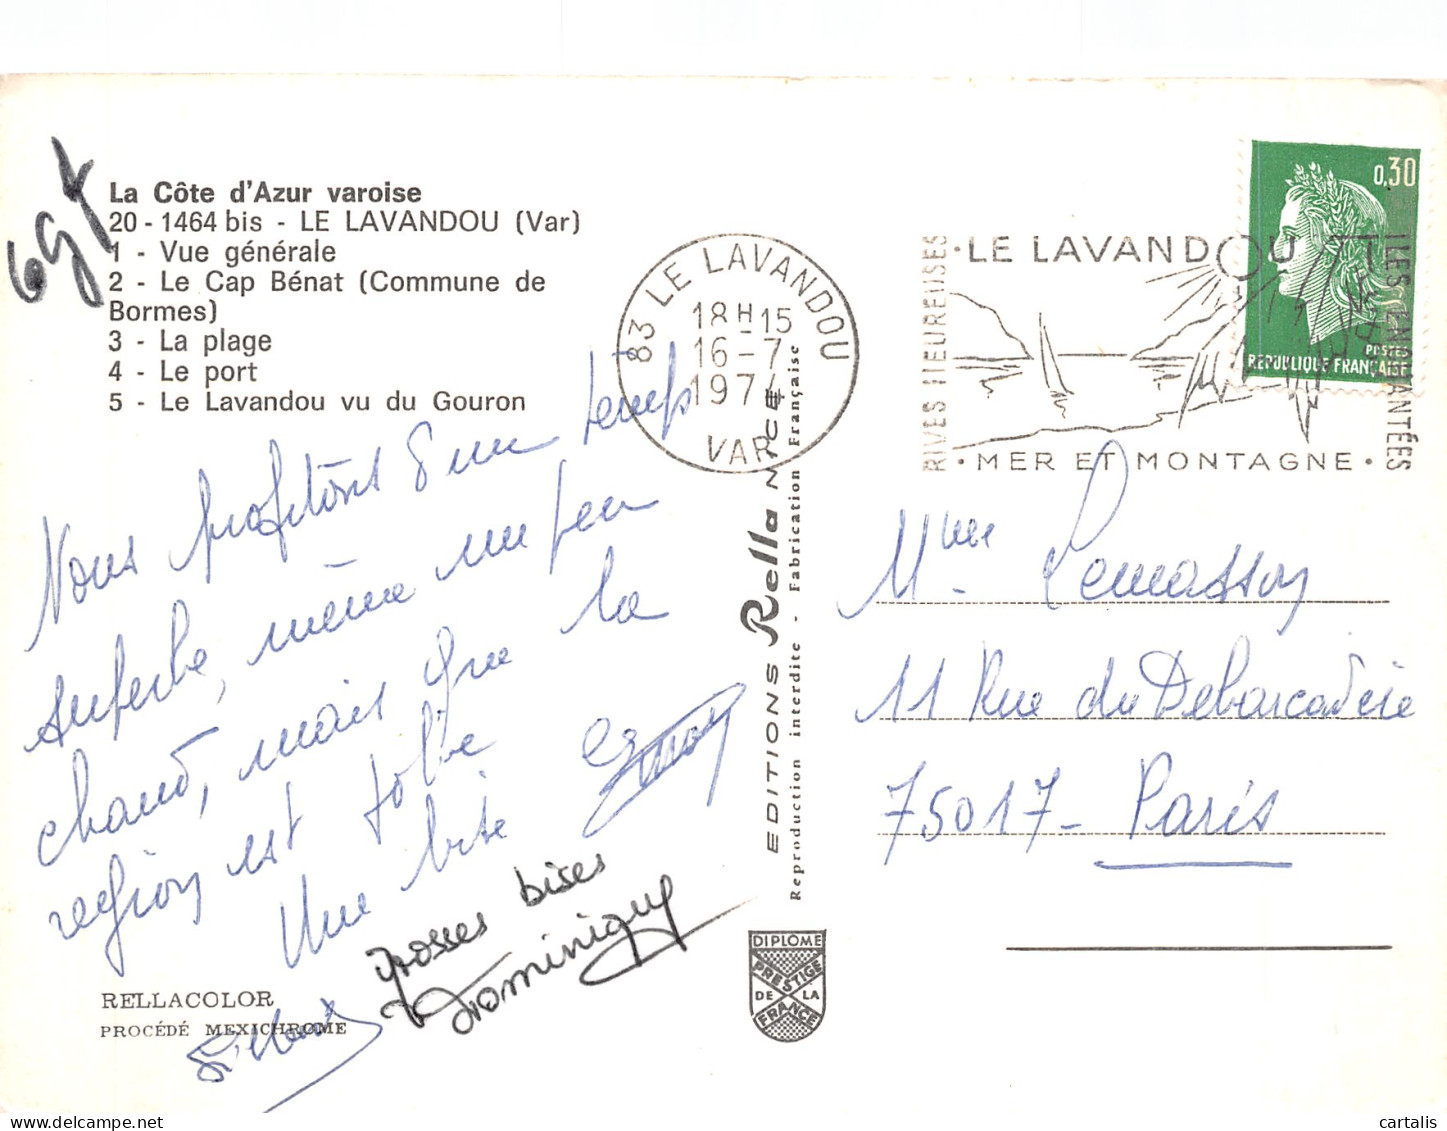 La Côte d'Azur varoise
20 - 1464 bis - LE LAVANDOU (Var)
1 - Vue générale
2 - Le Cap Bénat (Commune de
Bormes)
3 - La plage
4 - Le port
5 - Le Lavandou vu du Gouron
Nous profitons d'un temps
superbe, même un peu
chaud, mais que la
region est jolie
Une bise
grosses bises
Dominique
RELLACOLOR
PROCÉDÉ MEXICHROME
EDITIONS Rella NICE
Reproduction interdite - Fabrication Française
DIPLOME
PRESTIGE
DE LA
FRANCE
83 LE LAVANDOU
18H15
16-7
1974
VAR
RIVES HEUREUSES
· LE LAVANDOU
ILES ENCHANTÉES
· MER ET MONTAGNE ·
0,30
POSTES
REPUBLIQUE FRANÇAISE
Mme Lemasson
11 Rue du Debarcadère
75017 - Paris
cartalis